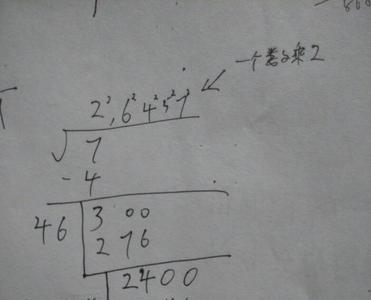 2²,6²4²5²7²
√7
-4
46 3 00
2 76
2400